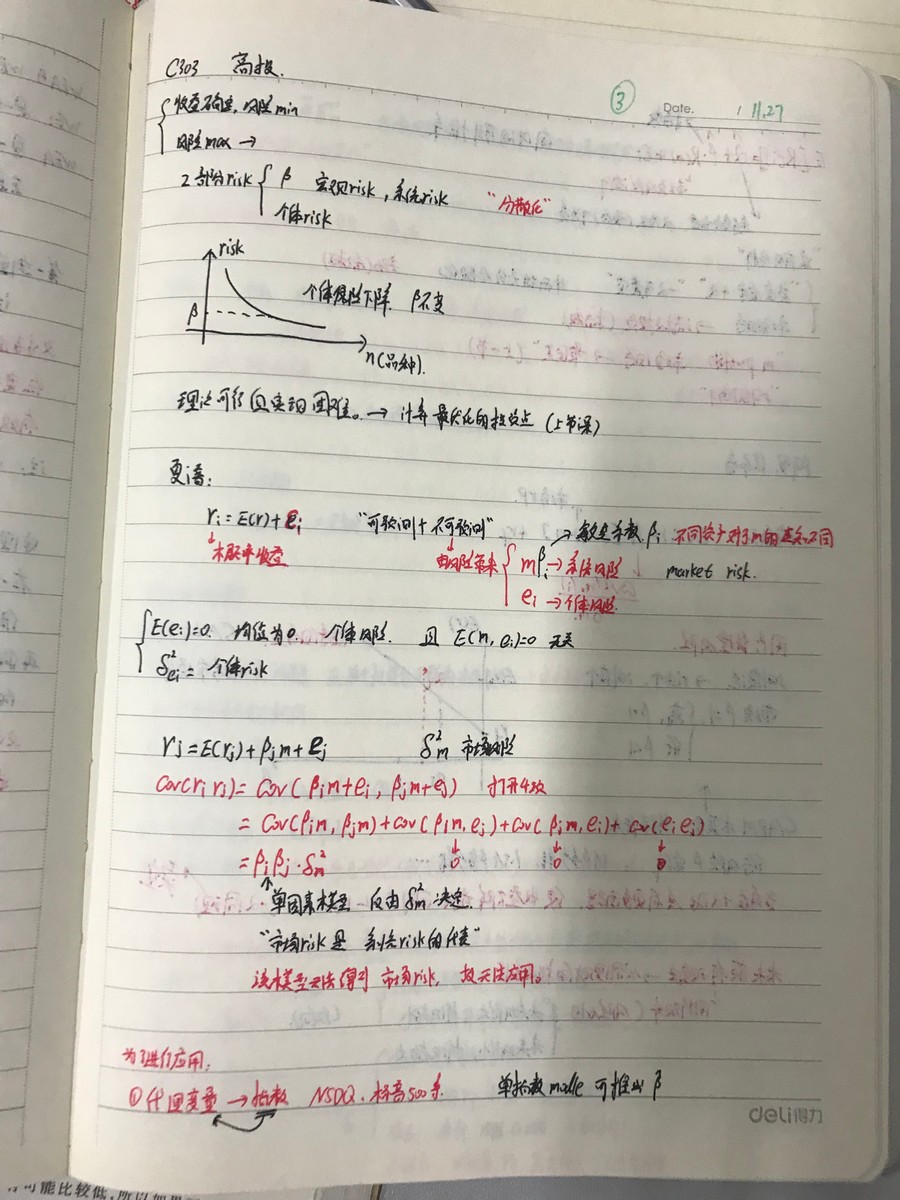 C303 高投.
③ Date. 11.27
收益确定, 风险min
风险max →
2部分risk β 宏观risk, 系统risk "分散化"
个体risk
risk
个体风险下降. β不变
β
n(品种).
理论可行但实现困难。→ 计算最优化的投资点 (上节课)
复语:
ri = E(r) + ei "可预测+不可预测" → 敏感系数 βi 不同资产对于m的不同
本 率收益 由风险带来 mβi → 系统风险 market risk.
ei → 个体风险.
E(ei)=0. 均值为0. 个体风险. 且 E(m, ei)=0 无关
δ²ei = 个体risk
rj = E(rj) + βjm + ej δ²m 市场风险
Cov(ri rj) = Cov( βim+ei, βjm+ej) 打开4次
= Cov(βim, βjm) + Cov(βim, ej) + Cov( βjm, ei) + Cov(ei ej)
= βiβj·δ²m 0 0 0
单因素模型 仅由δ²m决定.
"市场risk是 系统risk的代表"
该模型无法得到 市场risk, 故无法应用。
为了进行应用:
① 代回变量 → 指数 NSDQ. 标普500等. 单指数modle 可推出 β
deli得力
可能比较低,所以如果